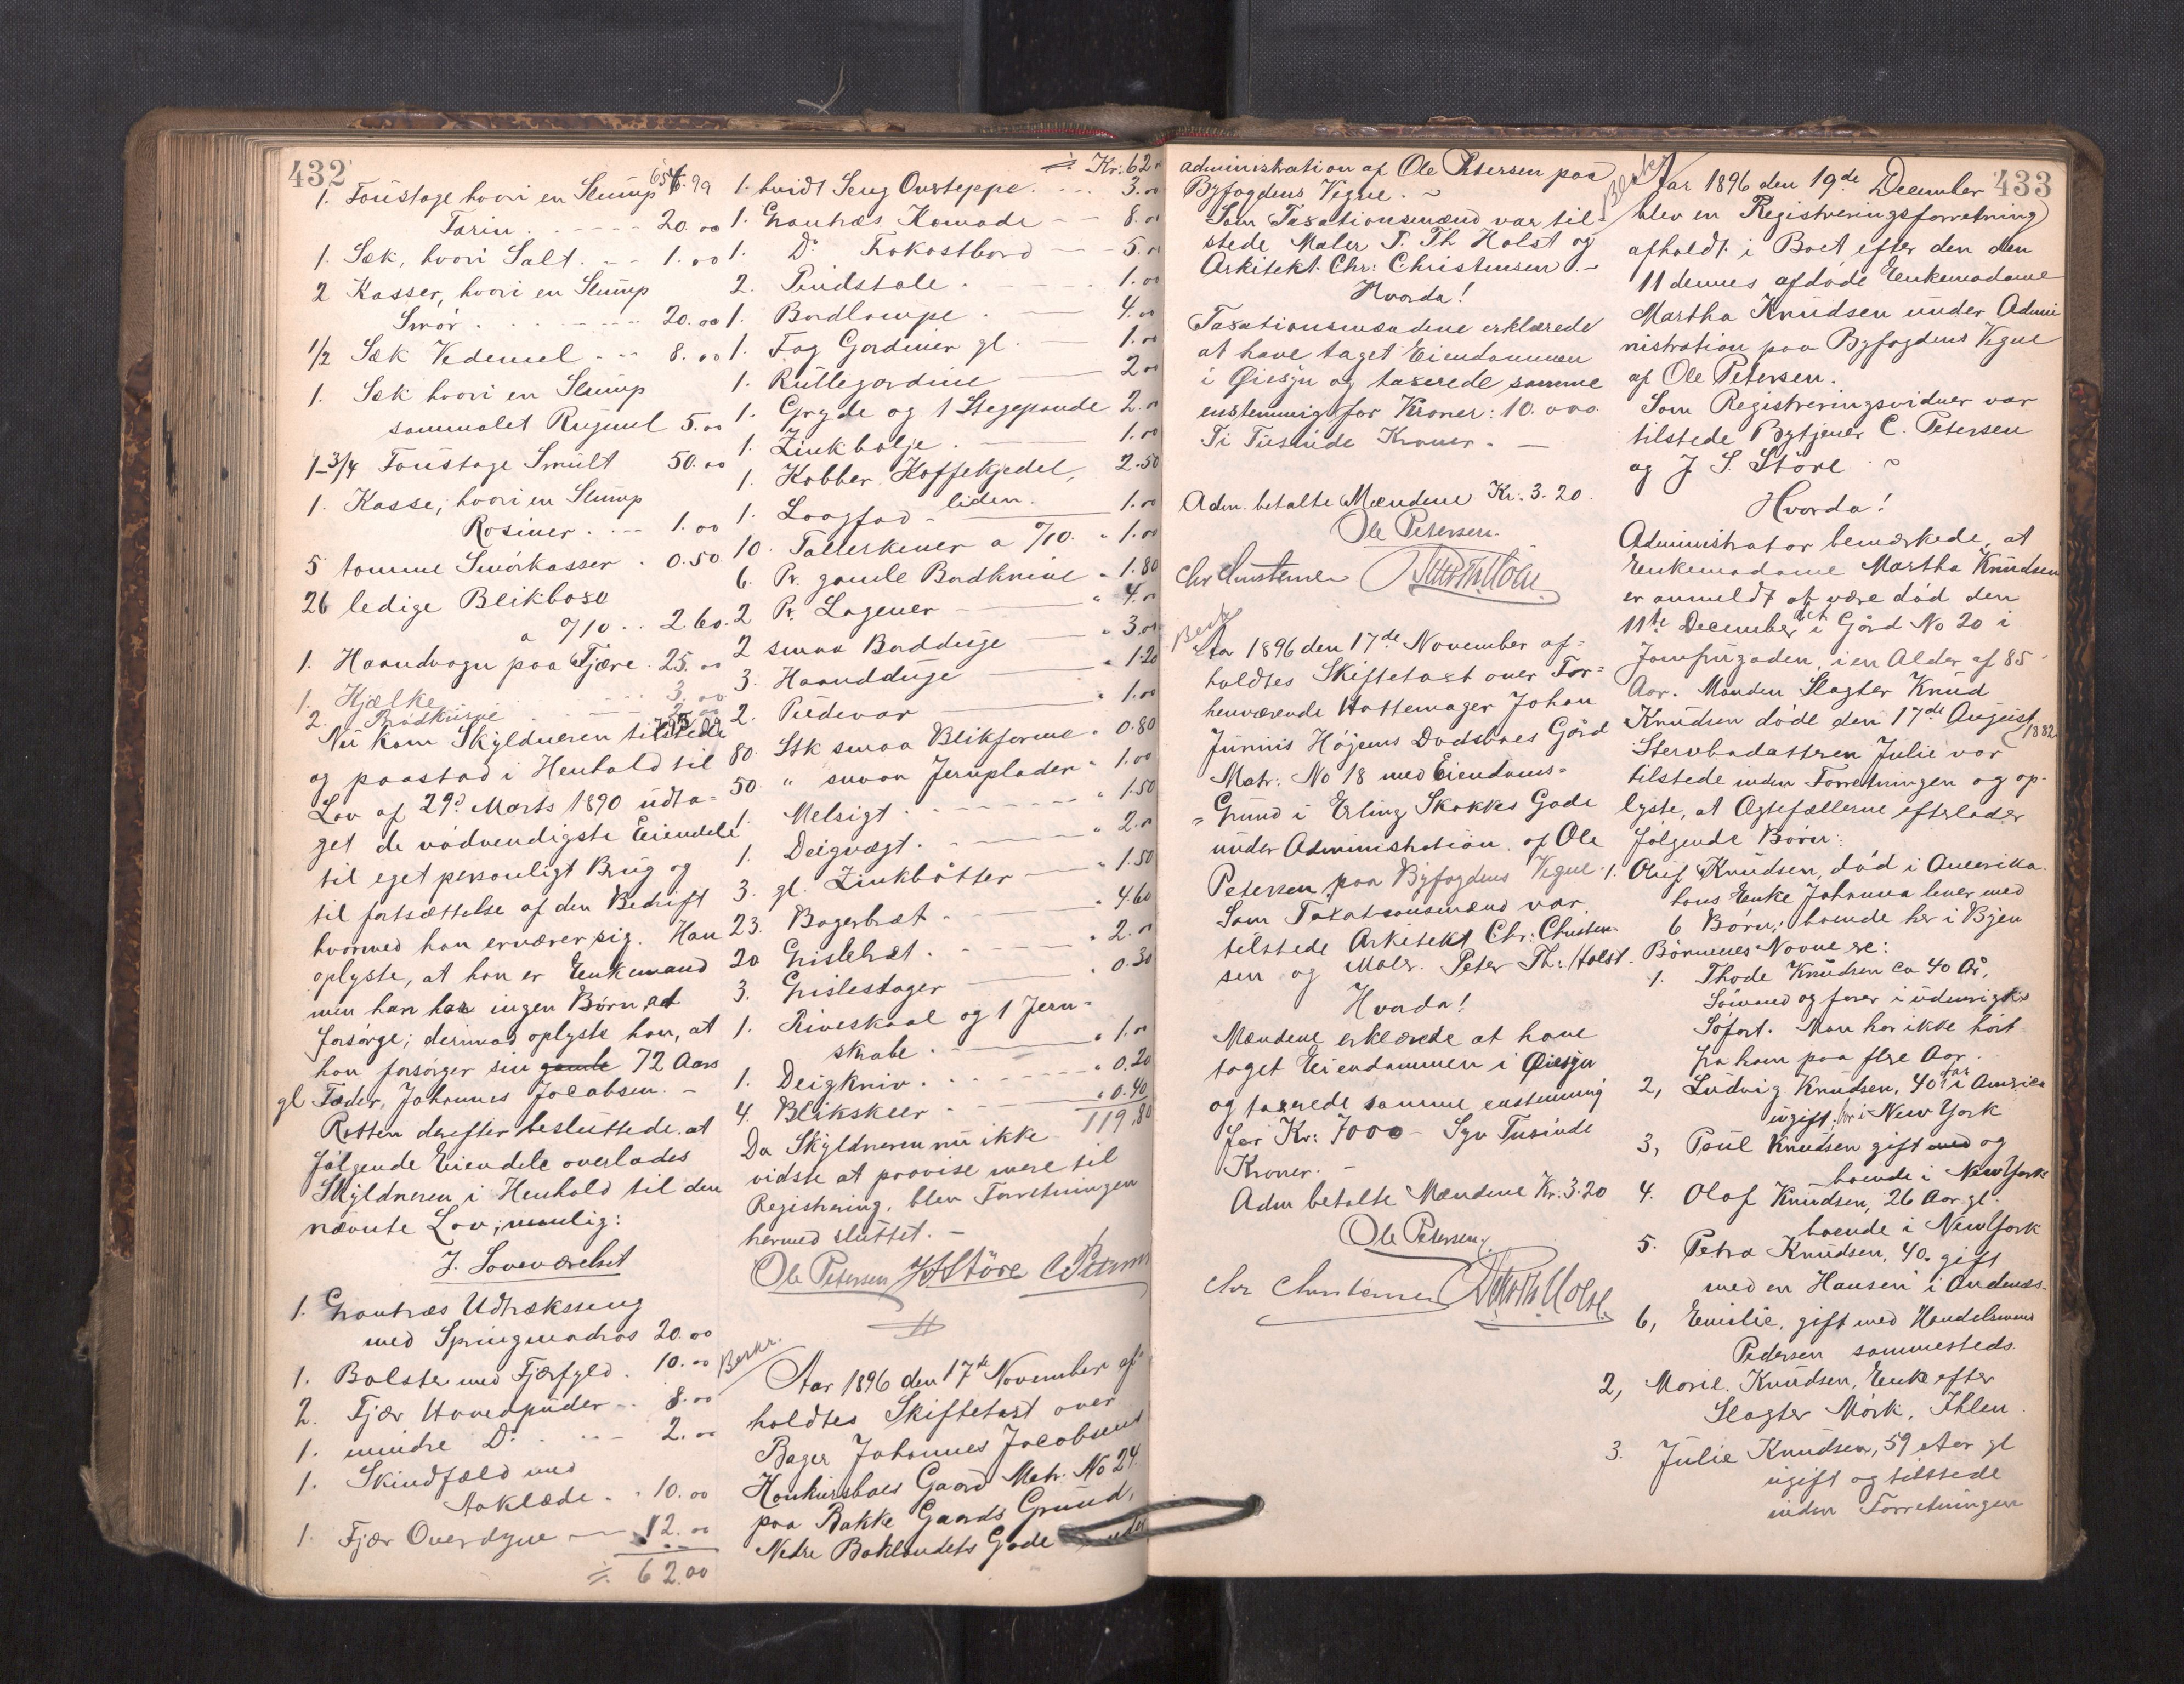 432
656.99
1. Foustage hvori en Slump
Farin . - - - - - 20.00
1. Sæk, hvori Salt. - - 1.00
2 Kasser, hvori en Slump
Smør . . . - - - - - 20.00
1/2 Sæk Vedemel - - - 8.00
1. Sæk hvori en Slump
sammalet Rugmel 5.00
1-3/4 Foustage Smult 50.00
1. Kasse, hvori en Slump
Rosiner. . - - - 1.00
5 tomme Smørkasser . 0.50
26 ledige Blikbose
a 0/10 . . 2.60.
1. Haandvogn paa Fjære . 25.00
1. Kjælke - - - 3.00
2. Brødkurve
Nu kom Skyldneren tilstede
og paastod i Henhold til
Lov af 29d Marts 1890 udta-
get de nødvendigste Eiendele
til eget personligt Brug og
til fortsættelse af den Bedrift
hvormed han erværer sig. Han
oplyste, at han er Enkemand
men han har ingen Børn at
forsørge; derimod oplyste han, at
han forsørger sin gamle 72 Aars
gl Fader, Johannes Jacobsen. -
Retten derefter besluttede at
følgende Eiendele overlades
Skyldneren i Henhold til den
nævnte Lov; nemlig:
J. Soveværelset
1. Grantræs Udtræksseng
med Springmadras 20.00
1. Bolster med Fjærfyld . 10.00
2. Fjær Hovedpuder - . 8.00
1. mindre Do . . - - 2.00
1. Skindfæld med
Aaklæde . . 10.00
1. Fjær Overdyne - - 12.00
÷ 62.00
÷ Kr: 62.00
1. hvidt Seng Overteppe. . - - 3.00
1. Grantræs Komode - - 8.00
1. Do Frokostbord - - 5.00
2. Pindstole . - - - - 1.00
1. Bordlampe . - - 4.00
1. Fag Gardiner gl - - 1.00
1. Rullegardine - - 2.00
1. Gryde og 1 Stegepande 2.00
1. Zinkbalje . - - 1.00
1. Kobber Kaffekjedel, 2.50
liden.
1. Laagfad - - 1.00
10. Tallerkener a 0/10. " 1.00
6. Pr. gamle Bordknive " 1.80
2 Pr. Lagener - - " 4.00
2 smaa Bordduge - " 3.00
3. Haandduge - - " 1.20
2. Pudevar - - " 1.00
80. Stk smaa Blikforme " 0.80
50. " smaa Jernplader " 1.00
1. Melsigt . - - - - " 1.50
1. Deigvægt . - - - " 2.00
3. gl. Zinkbøtter - - " 1.50
23. Bagerbræt . - - " 4.60
20 Grislebræt . - - " 2.00
3. Grislestager - - " 0.30
1. Riveskaal og 1 Jern-
skrabe . - - " 1.00
1. Deigkniv . - - - " 0.20
4. Blikskeer . - - " 0.40
119.80
Da Skyldneren nu ikke
vidste at paavise mere til
Registrering, blev Forretningen
hermed sluttet. -
Ole Petersen J S Störe C Petersen
Beskr.
Aar 1896 den 17de November af-
holdtes Skiftetaxt over
Bager Johannes Jacobsens
Konkursboes Gaard Matr. No 24.
paa Bakke Gaards Grund,
Nedre Baklandets Gade under
administration af Ole Petersen paa
Byfogdens Vegne. ~
Som Taxationsmænd var til-
stede Maler P. Th Holst og
Arkitekt Chr: Christensen. -
Hvorda!
Taxationsmændene erklærede
at have taget Eiendommen
i Øiesyn og taxerede samme
enstemmig for Kroner: 10.000.
Ti Tusinde Kroner. -
Adm. betalte Mændene Kr. 3.20.
Ole Petersen.
Chr Christensen P Th Holst
Beskr
Aar 1896 den 17de November af-
holdtes Skiftetaxt over For-
henværende Hattemager Johan
Junius Højems Dødsboes Gård
Matr. No 18 med Eiendoms-
Grund i Erling Skakkes Gade
under Administration af Ole
Petersen paa Byfogdens Vegne.
Som Taxationsmænd var
tilstede Arkitekt Chr: Christen-
sen og Maler. Peter Th. Holst.
Hvorda!
Mændene erklærede at have
taget Eiendommen i Øiesyn
og taxerede samme enstemmig
for Kr: 7000 - Syv Tusinde
Kroner. -
Adm betalte Mændene Kr: 3.20
Ole Petersen.
Chr Christensen P Th Holst.
433
Beskr
Aar 1896 den 19de December
blev en Registreringsforretning
afholdt i Boet efter den den
11 dennes afdøde Enkemadame
Martha Knudsen under Admi
nistration paa Byfogdens Vegne
af Ole Petersen.
Som Registreringsvidner var
tilstede Bytjener C. Petersen
og J S. Störe ~
Hvorda!
Administrator bemærkede, at
Enkemadame Martha Knudsen
er anmeldt at være død den
11te December i Gård No 20 i
Jomfrugaden, i en Alder af 85
Aar. Manden Slagter Knud
Knudsen døde den 17de August
1882.
Stervbodatteren Julie var
tilstede under Forretningen og op-
lyste, at Ægtefællerne efterlader
følgende Børn:
1. Oluf Knudsen, død i Amerika.
hans Enke Johanna lever med
6 Børn, boende her i Byen
Børnenes Navne ere:
1. Thode Knudsen ca 40 År,
Sømand og farer i udenrigsk
Søfart. Man har ikke hørt
fra ham paa flere Aar.
2, Ludvig Knudsen, 40 Aar i America
ugift. er i New York
3, Poul Knudsen gift med og
boende i New York
4. Olaf Knudsen, 26 Aar gl.
boende i New York
5. Petra Knudsen, 40. gift
med en Hansen i Andenæs.
6, Emilie, gift med Handelsmand
Pedersen sammesteds.
2, Marie. Knudsen, Enke efter
Slagter Mørk, Ihlen.
3. Julie Knudsen, 59 Aar gl
ugift og tilstede
under Forretningen